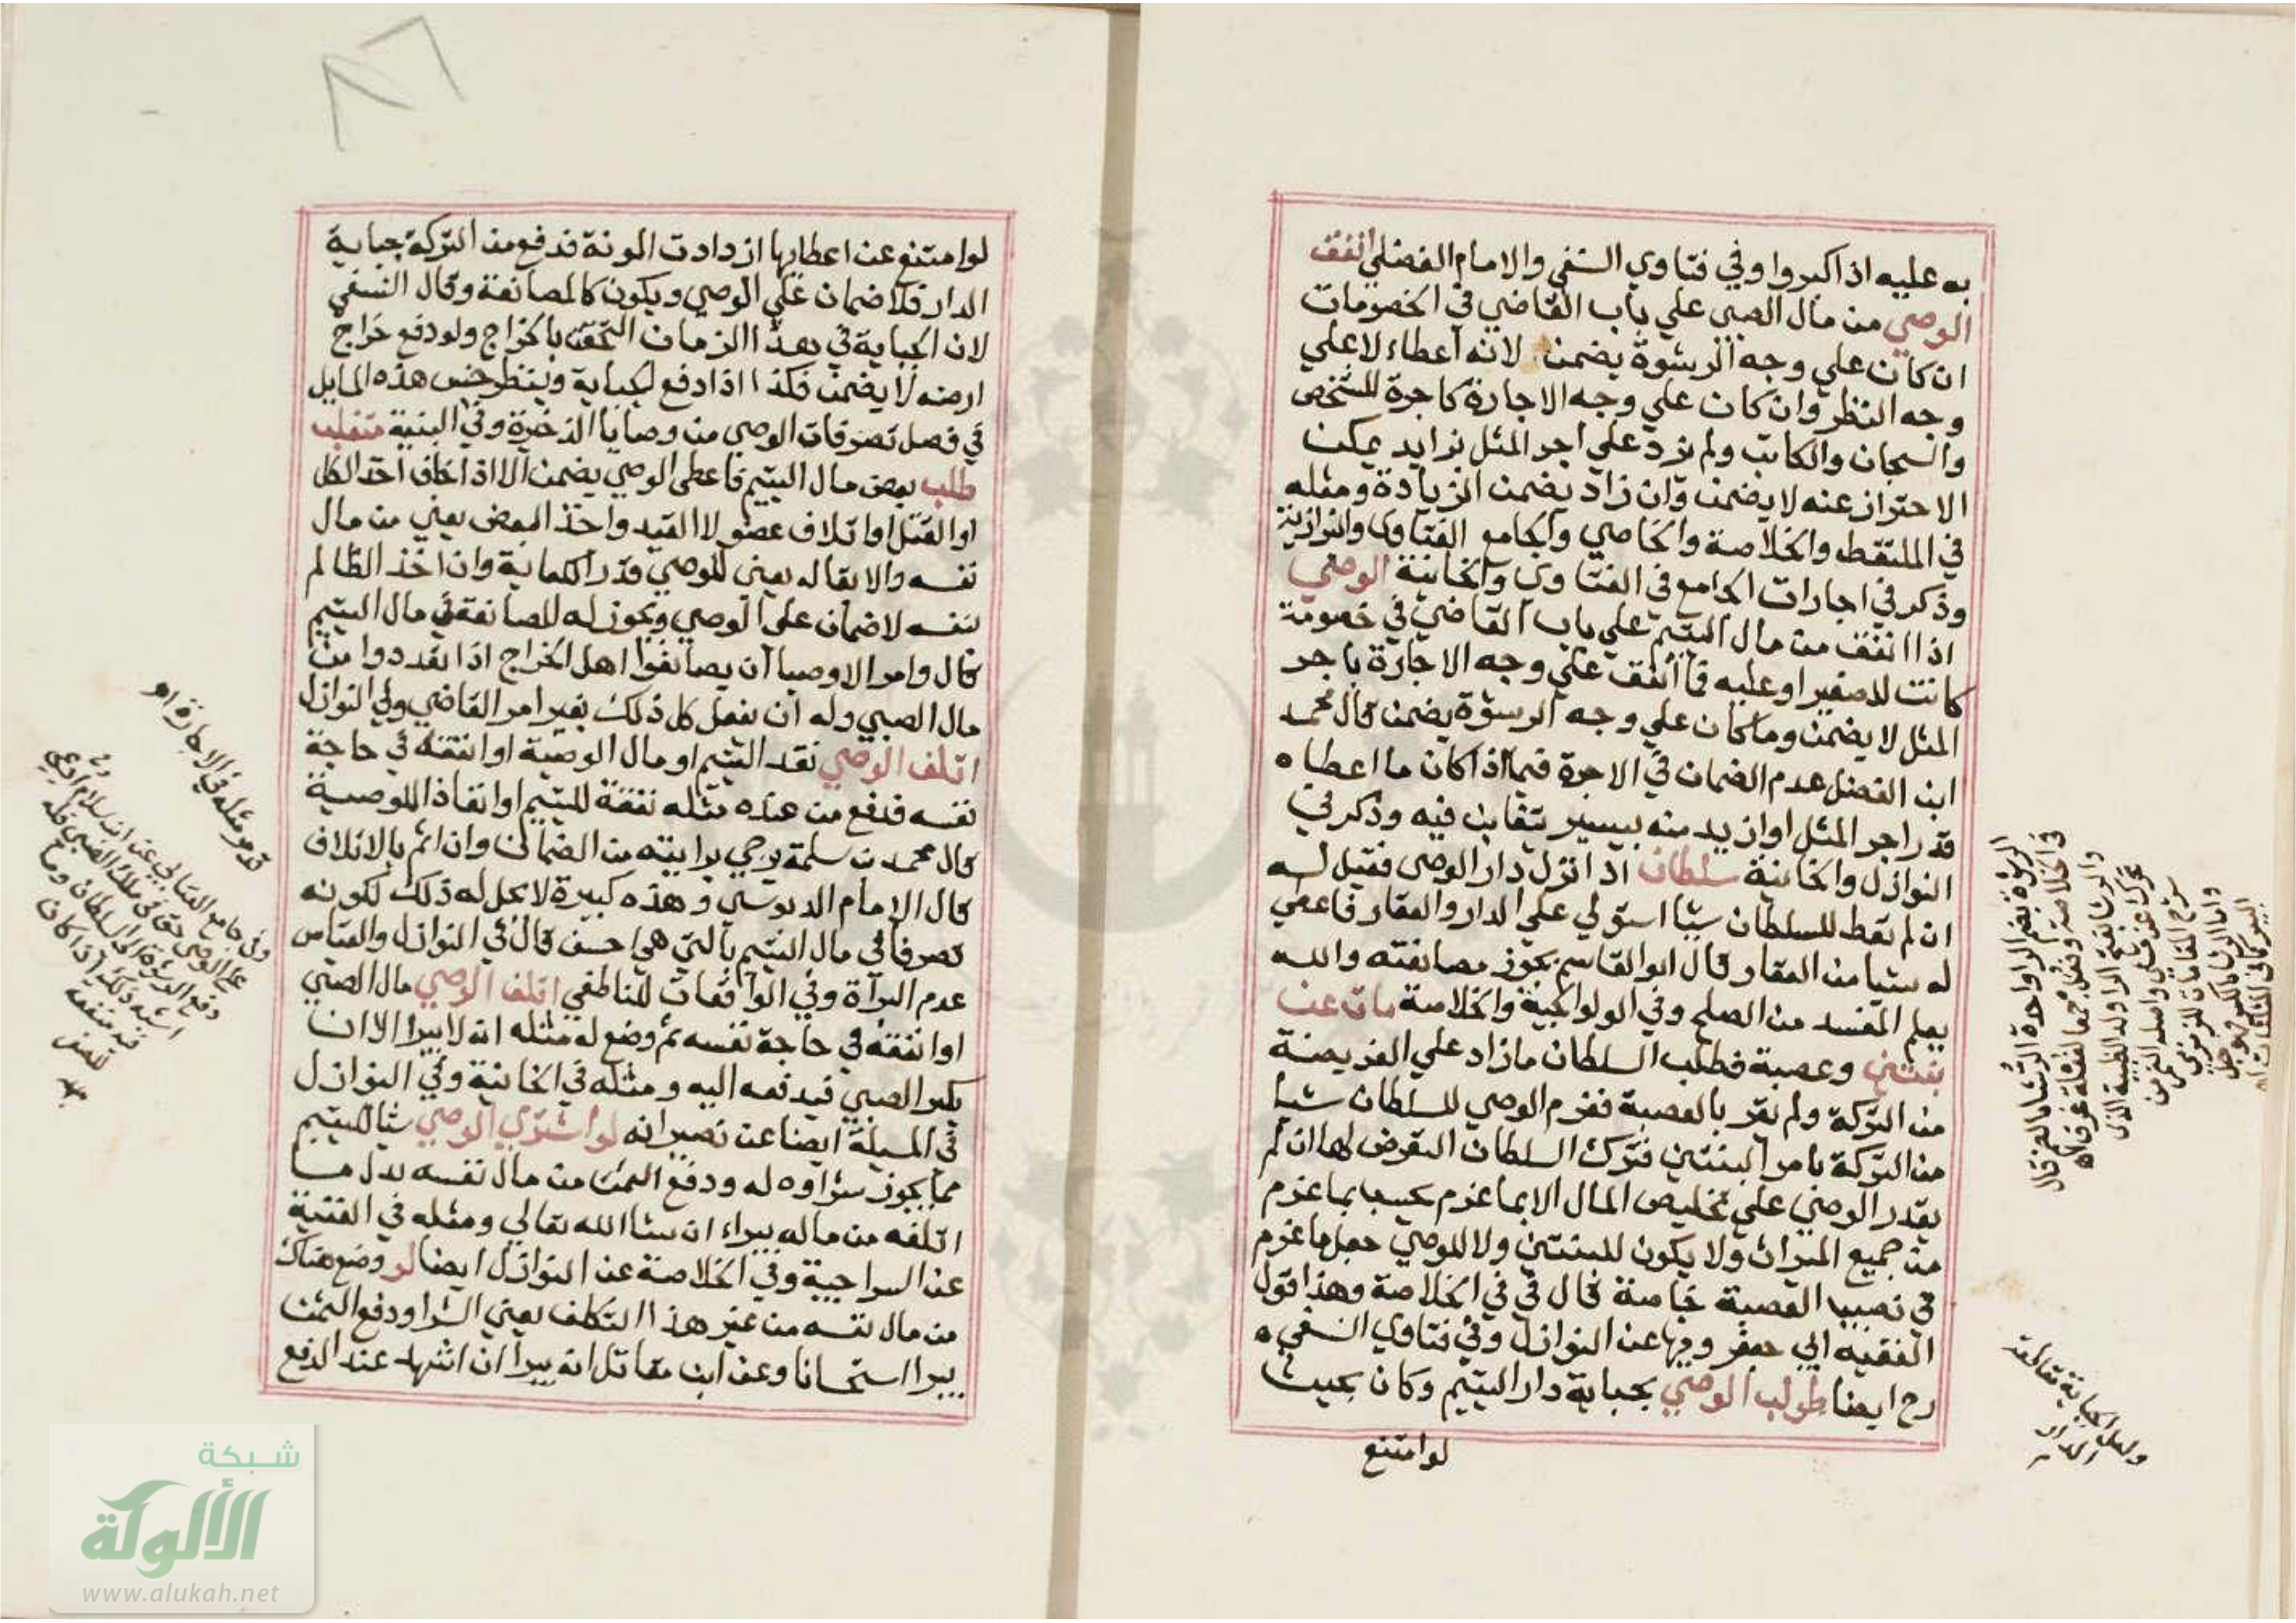 به عليه اذا كبروا وفي فتاوي النسفي والامام الفضلي انفق
الوصي من مال الصبي علي باب القاضي في الخصومات
ان كان علي وجه الرشوة يضمن لانه اعطاء لا علي
وجه النظر وان كان علي وجه الاجارة كاجرة للشخص
والسجان والكاتب ولم يزد علي اجر المثل بزايد يمكن
الاحتراز عنه لا يضمن وان زاد يضمن الزيادة ومثله
في الملتقط والخلاصة والخاصي والجامع الفتاوي والبزازية
وذكر في اجارات الجامع في الفتاوي والخانية الوصي
اذا انفق من مال اليتيم علي باب القاضي في خصومة
كانت للصغير او عليه فما انفق علي وجه الاجارة باجر
المثل لا يضمن وما كان علي وجه الرسوة يضمن قال محمد
ابن الفضل عدم الضمان في الاجرة فيما اذا كان ما اعطاه
قدر اجر المثل او ازيد منه بيسير يتغابن فيه وذكر في
النوازل والخانية سلطان اذا نزل دار الوصي فقيل له
ان لم تعط للسلطان شيا استولي علي الدار والعقار فاعطي
له شيا من العقار قال ابو القاسم يجوز مصانعته والله
يعلم المفسد من الصلح وفي الولوالجية والخلاصة مات عن
بنتين وعصبة فطلب السلطان ما زاد علي الفريضة
من التركة ولم يقر بالعصبة فغرم الوصي للسلطان شيا
من التركة بامر البنتين فترك السلطان التعرض لها ان لم
يقدر الوصي علي تخليص المال الا بما غرم يحسب بما غرم
من جميع الميراث ولا يكون للبنتين ولا للوصي جعل ما غرم
في نصيب العصبة خاصة قال في في الخلاصة وهذا قول
الفقيه ابي جعفر وفيها عن النوازل وفي فتاوي النسفي
رح ايضا طولب الوصي بجباية دار اليتيم وكان بحيث
لو امتنع
ولعل الجباية تقالعة
الدار
لو امتنع عن اعطايها ازدادت المونة فدفع من التركة جباية
الدار فلا ضمان علي الوصي ويكون كالمصانعة وقال النسفي
لان الجباية في هذا الزمان التحقت بالخراج ولو دفع خراج
ارضه لا يضمن فكذا اذا دفع الجباية وينظر جنس هذه المسايل
في فصل تصرفات الوصي من وصايا الذخيرة وفي البنية متغلب
طلب بعض مال اليتيم فاعطي الوصي يضمن الا اذا خاف اخذ الكل
او القتل او اتلاف عضو لا القيد واخذ البعض يعني من مال
نفسه والابقا له يعني للوصي قدر الكفاية وان اخذ الظالم
بنفسه لا ضمان علي الوصي ويجوز له المصانعة في مال اليتيم
قال وامر الاوصيا ان يصانعوا اهل الخراج اذا تعددوا من
مال الصبي وله ان يفعل كل ذلك بغير امر القاضي وفي النوازل
اتلف الوصي نقد اليتيم او مال الوصية او انفقه في حاجة
نفسه فدفع من عنده مثله نفقة لليتيم او انفاذا للوصية
قال محمد بن سلمة يرجي برايته من الضمان وان اثم بالاتلاف
قال الامام الدبوسي وهذه كبيرة لا يحل له ذلك لكونه
تصرفا في مال اليتيم بالتي هي احسن قال في النوازل والقياس
عدم البراة وفي الواقعات للناطفي اتلف الوصي مال الصبي
او انفقه في حاجة نفسه ثم وضع له مثله انه لا يبرا الا ان
يكبر الصبي فيدفعه اليه ومثله في الخانية وفي النوازل
في المسيلة ايضا عن نصير انه لو اشتري الوصي شيا لليتيم
مما يجوز شراوه له ودفع الثمن من مال نفسه بدل ما
اتلفه من ماله يبراء ان شا الله تعالي ومثله في القنية
عن السراجية وفي الخلاصة عن النوازل ايضا لو وضع هناك
من مال نفسه من غير هذا التكلف يعني الشرا ودفع الثمن
يبرا استحسانا وعن ابن مقاتل انه يبرا ان اشهد عند الدفع
شبكة
الألوكة
www.alukah.net